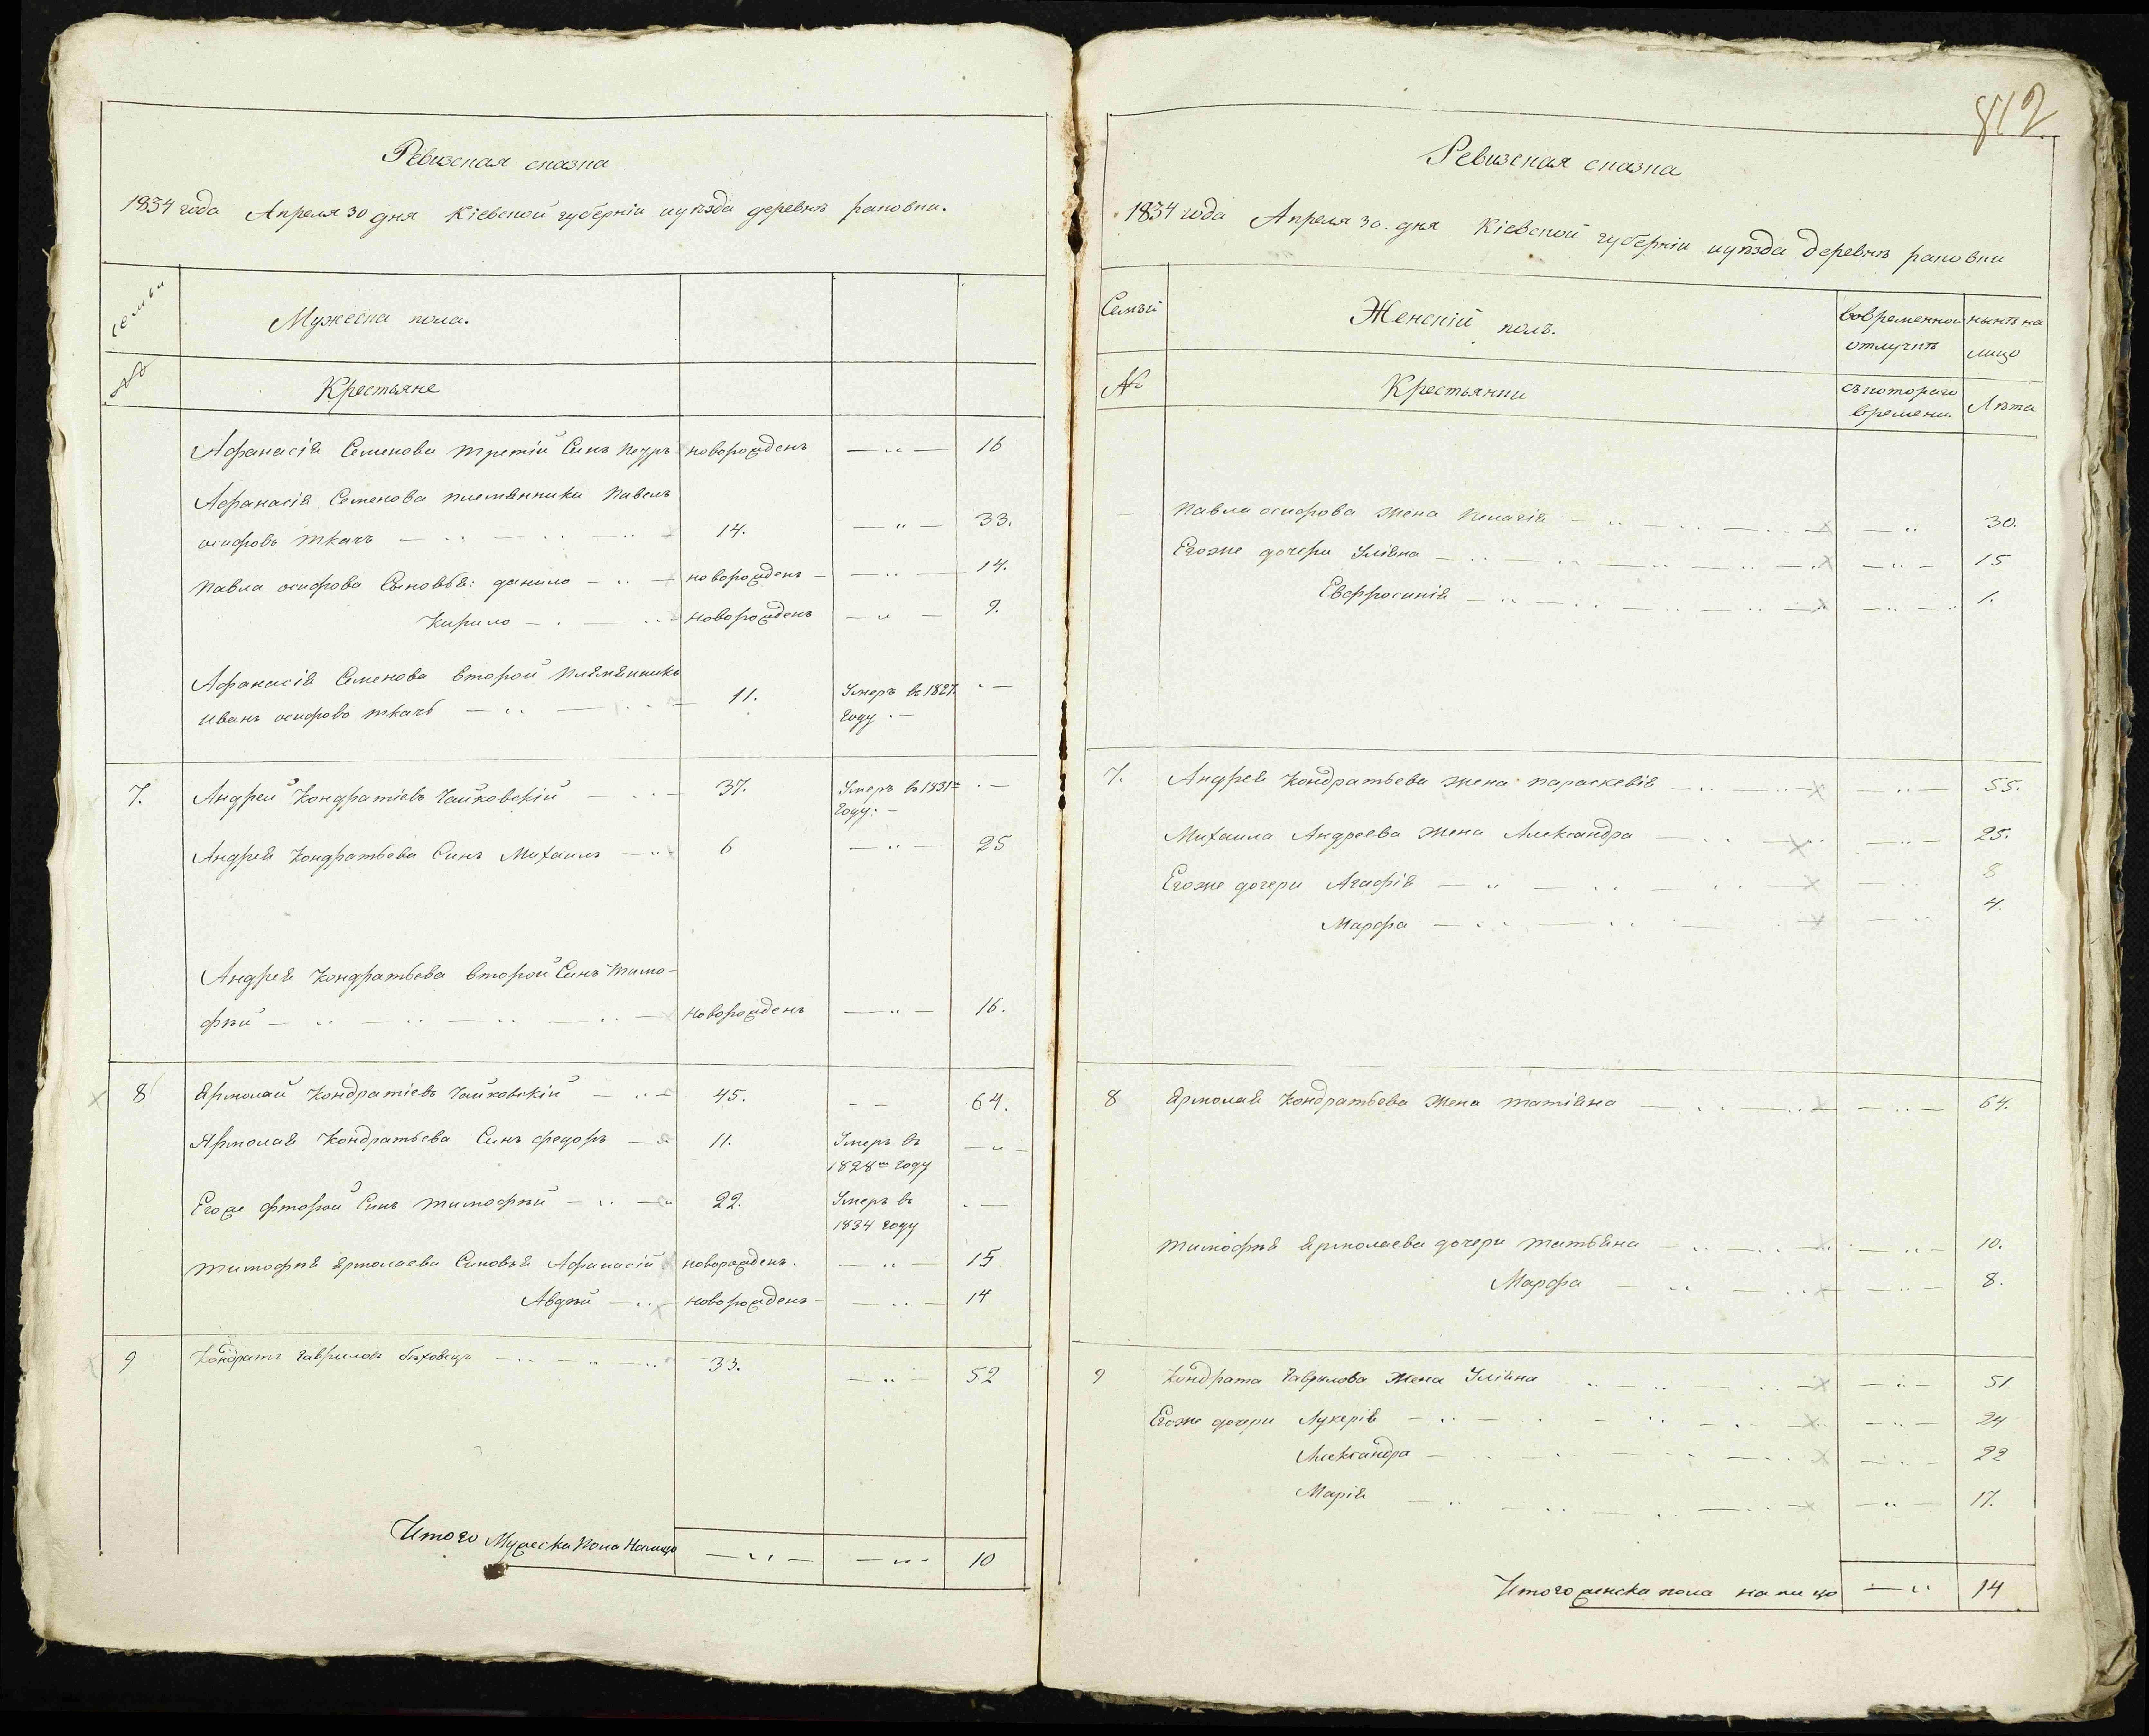 Ревизская сказка
1834 года Апреля 30 дня Кіевской губерніи и уѣзда деревнѣ раковки.
Семьи
Мужеска пола.
№
Крестьяне
Афанасія Семенова третій Синъ новорожденъ — „ — 16
Афанасія Семенова племянники Павелъ
осифовъ ткачъ — 14. — „ — 33.
Павла осифова Сыновья: данило — новорожденъ — „ — 14.
Кирило — новорожденъ — „ — 9.
Афанасія Семенова второй племянникъ
иванъ осифовъ ткачь — 11. Умеръ въ 1827 году. —
7. Андрей Кондратіевъ Чайковскій — 37. Умеръ въ 1831м году. —
Андрея Кондратьева Синъ Михаилъ — 6 — „ — 25
Андрея Кондратьева второй Синъ Тимо-
фѣй — новорожденъ — „ — 16.
8 Ярмолай Кондратіевъ Чайковскій — 45. — — 64.
Ярмолая Кондратьева Синъ федоръ — 11. Умеръ въ 1828м году — „ —
Егоже фторой Синъ тимофѣй — 22. Умеръ въ 1834 году . —
тимофѣя Ярмолаева Синовья Афанасій новорожденъ. — „ — 15
Авдѣй — новорожденъ — „ — 14
9 Кондратъ гавриловъ бѣховецъ — 33. — „ — 52
Итого Мужеска Пола Налицо — „ — — „ — 10
812
Ревизская сказка
1834 года Апреля 30. дня Кіевской губерніи и уѣзда деревнѣ раковки
Семьи
Женскій полъ.
Вовременной отлучкѣ
нынѣ на лицо
№
Крестьянки
съ котораго времени.
Лѣта
Павла осифова жена Пелагія — „ — 30.
Егоже дочери Уліяна — „ — 15
Евфросинія — „ — 1.
7. Андрея Кондратьева жена параскевія — „ — 55.
Михаила Андреева жена Александра — „ — 25.
Егоже дочери Агафія — „ — 8
Марфа — „ — 4.
8 Ярмолая Кондратьева жена татіяна — „ — 64.
тимофѣя Ярмолаева дочери татьяна — „ — 10.
Марфа — „ — 8.
9 Кондрата Гаврилова жена Уліяна — „ — 51
Егоже дочери Лукерія — „ — 24
Александра — „ — 22
Марія — „ — 17.
Итого женска пола на лицо — „ 14